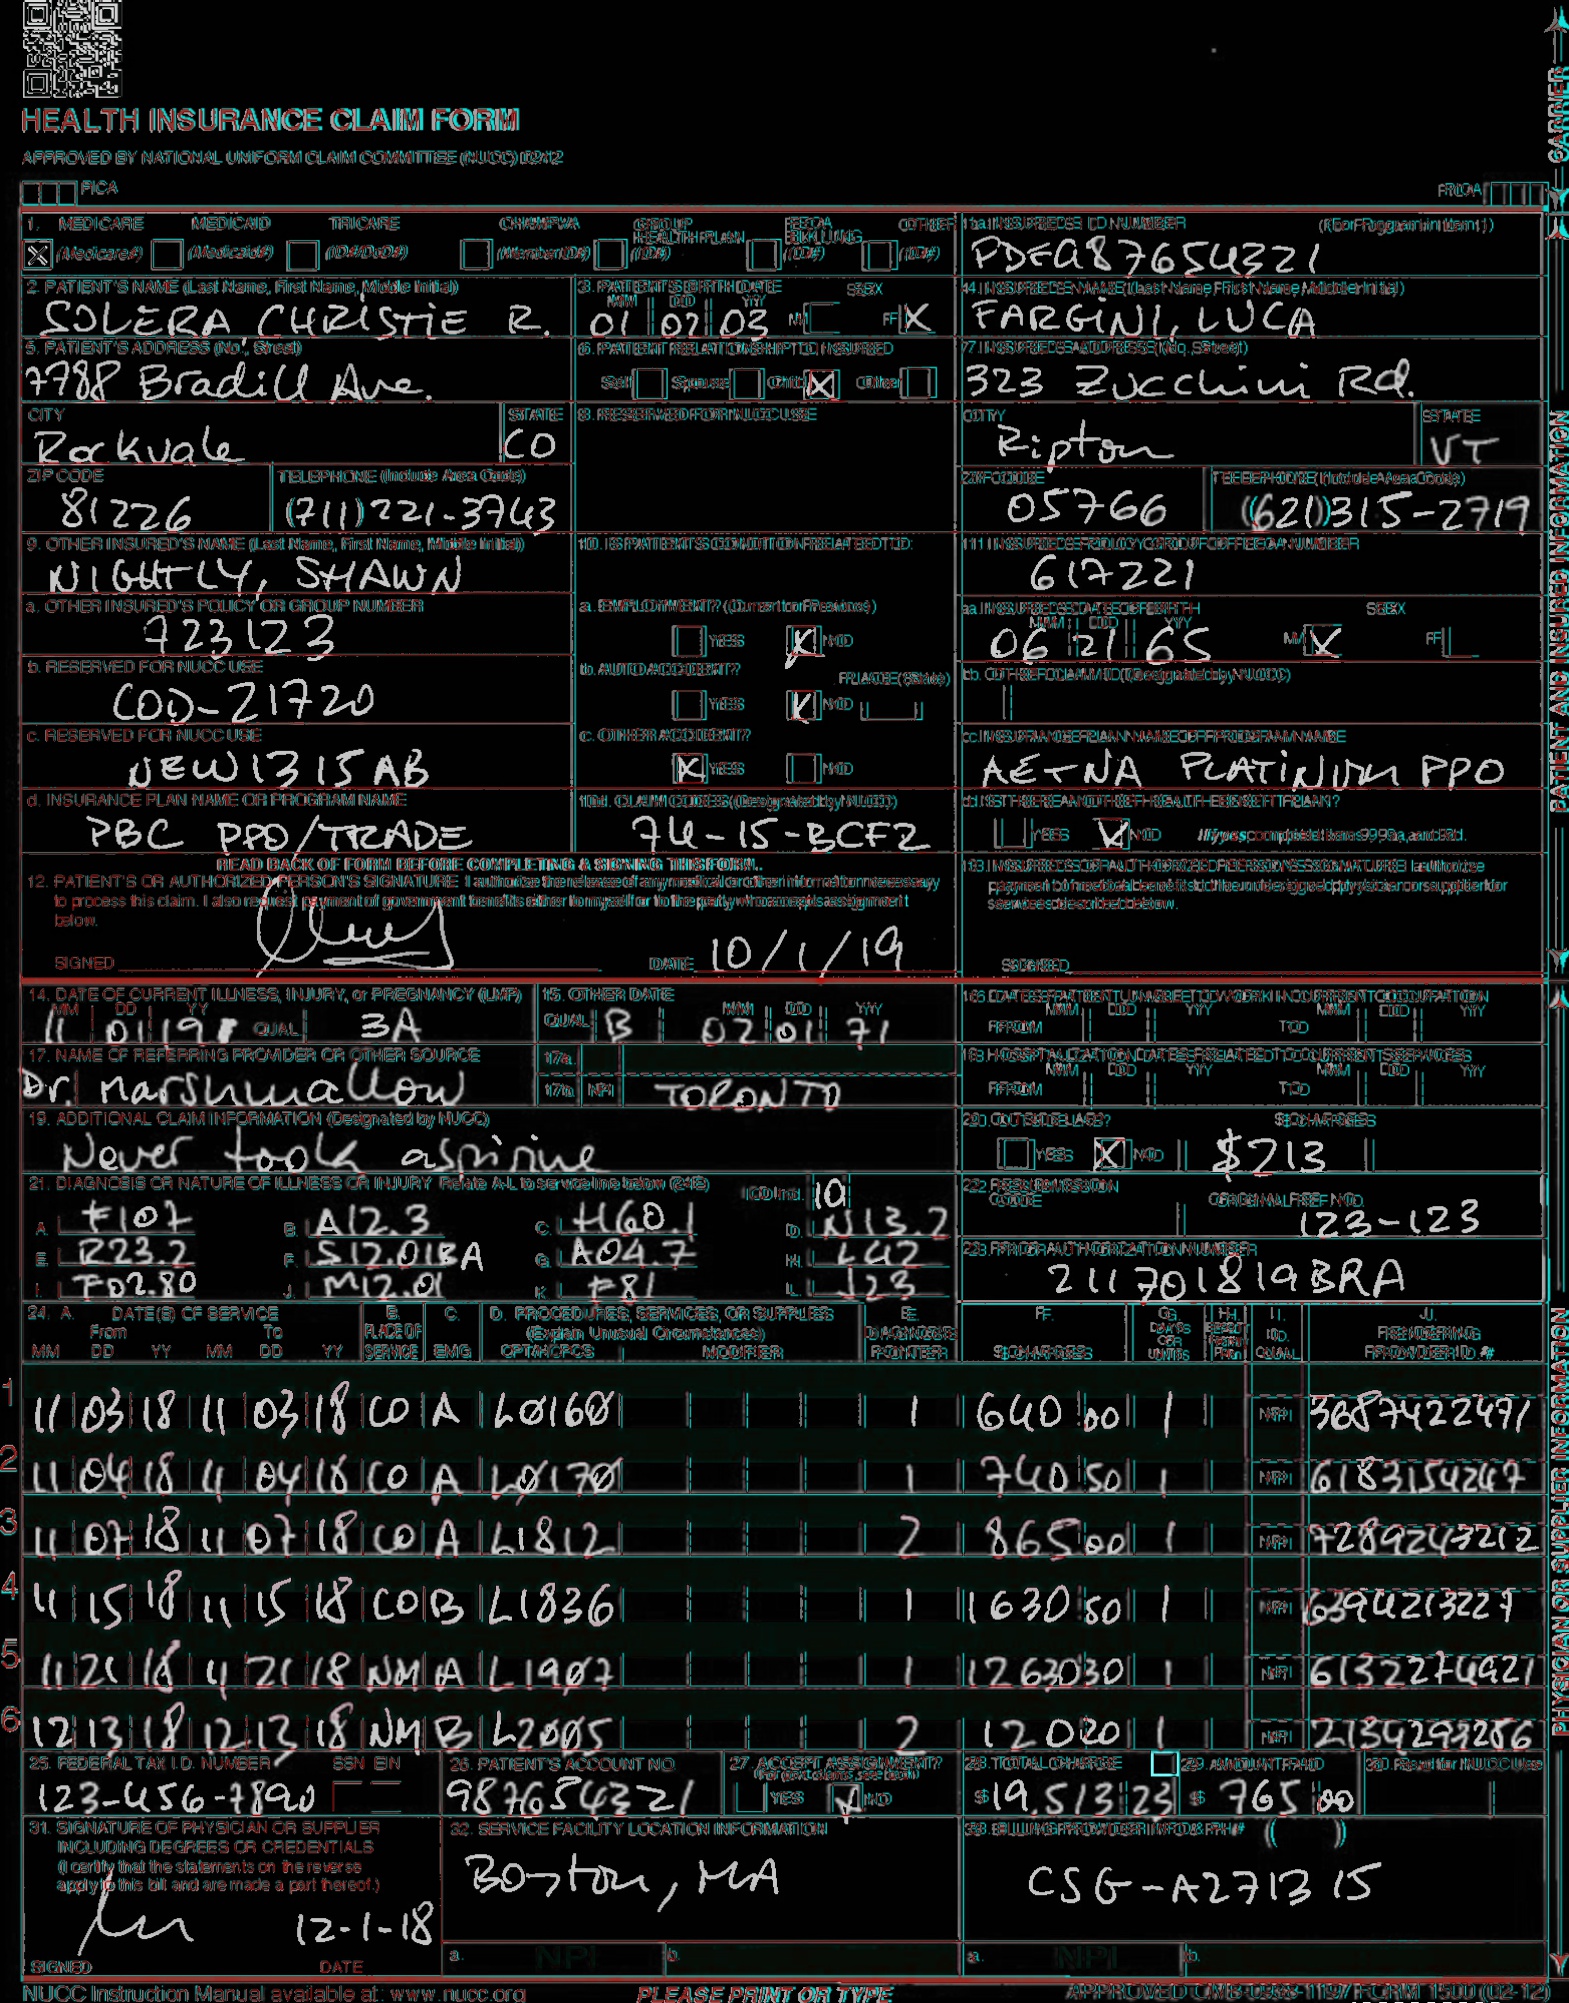 HEALTH INSURANCE CLAIM FORM
APPROVED BY NATIONAL UNIFORM CLAIM COMMITTEE (NUCC) 02/12
PICA
PICA
CARRIER
1. MEDICARE MEDICAID TRICARE CHAMPVA GROUP HEALTH PLAN FECA BLK LUNG OTHER
X (Medicare#) (Medicaid#) (ID#/DoD#) (Member ID#) (ID#) (ID#) (ID#)
1a. INSURED'S I.D. NUMBER (For Program in Item 1)
PDFA87654321
2. PATIENT'S NAME (Last Name, First Name, Middle Initial)
SOLERA CHRISTIE R.
3. PATIENT'S BIRTH DATE SEX
MM DD YY
01 02 03 M F X
4. INSURED'S NAME (Last Name, First Name, Middle Initial)
FARGINI, LUCA
5. PATIENT'S ADDRESS (No., Street)
7788 Bradill Ave.
6. PATIENT RELATIONSHIP TO INSURED
Self Spouse Child X Other
7. INSURED'S ADDRESS (No., Street)
323 Zucchini Rd.
CITY STATE
Rockvale CO
8. RESERVED FOR NUCC USE
CITY STATE
Ripton VT
ZIP CODE TELEPHONE (Include Area Code)
81226 (711) 221-3743
ZIP CODE TELEPHONE (Include Area Code)
05766 (621) 315-2719
9. OTHER INSURED'S NAME (Last Name, First Name, Middle Initial)
NIGHTLY, SHAWN
10. IS PATIENT'S CONDITION RELATED TO:
11. INSURED'S POLICY GROUP OR FECA NUMBER
617221
a. OTHER INSURED'S POLICY OR GROUP NUMBER
723123
a. EMPLOYMENT? (Current or Previous)
YES X NO
a. INSURED'S DATE OF BIRTH SEX
MM DD YY
06 21 65 M X F
b. RESERVED FOR NUCC USE
COD-21720
b. AUTO ACCIDENT? PLACE (State)
YES X NO
b. OTHER CLAIM ID (Designated by NUCC)
c. RESERVED FOR NUCC USE
NEW1315AB
c. OTHER ACCIDENT?
X YES NO
c. INSURANCE PLAN NAME OR PROGRAM NAME
AETNA PLATINUM PPO
d. INSURANCE PLAN NAME OR PROGRAM NAME
PBC PPO/TRADE
10d. CLAIM CODES (Designated by NUCC)
74-15-BCF2
d. IS THERE ANOTHER HEALTH BENEFIT PLAN?
YES X NO If yes, complete items 9, 9a, and 9d.
PATIENT AND INSURED INFORMATION
READ BACK OF FORM BEFORE COMPLETING & SIGNING THIS FORM.
12. PATIENT'S OR AUTHORIZED PERSON'S SIGNATURE I authorize the release of any medical or other information necessary
to process this claim. I also request payment of government benefits either to myself or to the party who accepts assignment
below.
SIGNED DATE 10/1/19
13. INSURED'S OR AUTHORIZED PERSON'S SIGNATURE I authorize
payment of medical benefits to the undersigned physician or supplier for
services described below.
SIGNED
14. DATE OF CURRENT ILLNESS, INJURY, or PREGNANCY (LMP)
MM DD YY
11 01 19 QUAL. 3A
15. OTHER DATE
MM DD YY
QUAL. B 02 01 71
16. DATES PATIENT UNABLE TO WORK IN CURRENT OCCUPATION
MM DD YY MM DD YY
FROM TO
17. NAME OF REFERRING PROVIDER OR OTHER SOURCE
Dr. Marshmallow
17a.
17b. NPI TORONTO
18. HOSPITALIZATION DATES RELATED TO CURRENT SERVICES
MM DD YY MM DD YY
FROM TO
19. ADDITIONAL CLAIM INFORMATION (Designated by NUCC)
Never took aspirine
20. OUTSIDE LAB? $ CHARGES
YES X NO $213
21. DIAGNOSIS OR NATURE OF ILLNESS OR INJURY Relate A-L to service line below (24E) ICD Ind. 10
A. F107 B. A12.3 C. H60.1 D. N13.2
E. R23.2 F. S12.01BA G. A04.7 H. L42
I. F02.80 J. M12.01 K. F81 L. J23
22. RESUBMISSION CODE ORIGINAL REF. NO.
123-123
23. PRIOR AUTHORIZATION NUMBER
211701819BRA
24. A. DATE(S) OF SERVICE B. PLACE OF SERVICE C. EMG D. PROCEDURES, SERVICES, OR SUPPLIES E. DIAGNOSIS POINTER F. $ CHARGES G. DAYS OR UNITS H. EPSDT Family Plan I. ID. QUAL. J. RENDERING PROVIDER ID. #
From To (Explain Unusual Circumstances)
MM DD YY MM DD YY CPT/HCPCS MODIFIER
1 11 03 18 11 03 18 CO A L0160 1 640 00 1 NPI 3687422471
2 11 04 18 11 04 18 CO A L0170 1 740 50 1 NPI 6183154247
3 11 07 18 11 07 18 CO A L1812 2 865 00 1 NPI 7289243212
4 11 15 18 11 15 18 CO B L1836 1 1630 50 1 NPI 6394213227
5 11 21 18 11 21 18 NM A L1907 1 1263030 1 NPI 6132274921
6 12 13 18 12 13 18 NM B L2005 2 12 020 1 NPI 2134293286
25. FEDERAL TAX I.D. NUMBER SSN EIN
123-456-7890
26. PATIENT'S ACCOUNT NO.
987654321
27. ACCEPT ASSIGNMENT?
(For govt. claims, see back)
YES X NO
28. TOTAL CHARGE
$ 19.513 23
29. AMOUNT PAID
$ 765 00
30. Rsvd for NUCC Use
31. SIGNATURE OF PHYSICIAN OR SUPPLIER
INCLUDING DEGREES OR CREDENTIALS
(I certify that the statements on the reverse
apply to this bill and are made a part thereof.)
12-1-18
SIGNED DATE
32. SERVICE FACILITY LOCATION INFORMATION
Boston, MA
a. NPI b.
33. BILLING PROVIDER INFO & PH # ( )
CSG-A271315
a. NPI b.
PHYSICIAN OR SUPPLIER INFORMATION
NUCC Instruction Manual available at: www.nucc.org
PLEASE PRINT OR TYPE
APPROVED OMB-0938-1197 FORM 1500 (02-12)